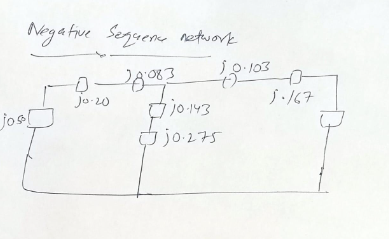 Negative Sequence network
j0.083
j0.103
j0.20
j0.143
j.167
j0.275